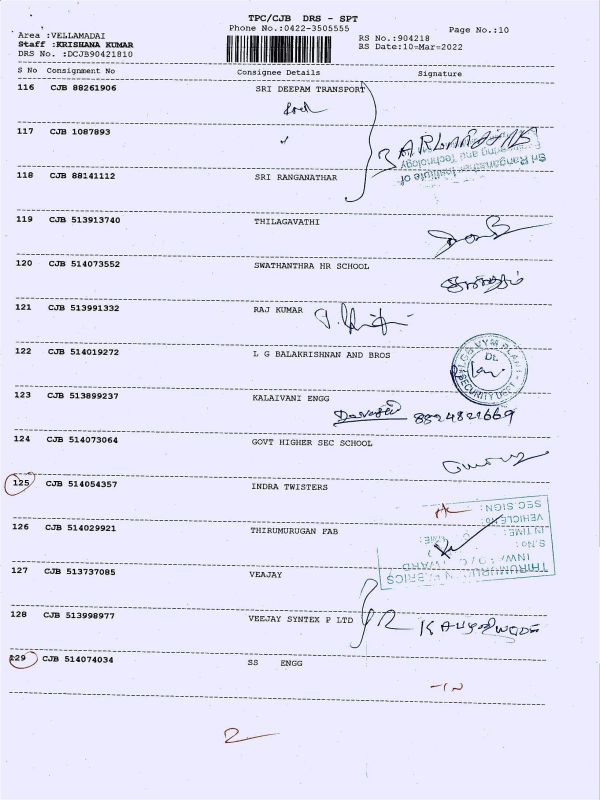 TPC/CJB DRS - SPT
Phone No.:0422-3505555
Page No.:10
Area :VELLAMADAI
RS No.:904218
Staff :KRISHANA KUMAR
RS Date:10=Mar=2022
DRS No. :DCJB90421810
S No Consignment No Consignee Details Signature
116 CJB 88261906 SRI DEEPAM TRANSPORT
117 CJB 1087893
Sri Ranganathar Institute of
Engineering and Technology
118 CJB 88141112 SRI RANGANATHAR
119 CJB 513913740 THILAGAVATHI
120 CJB 514073552 SWATHANTHRA HR SCHOOL
121 CJB 513991332 RAJ KUMAR
122 CJB 514019272 L G BALAKRISHNAN AND BROS
SECURITY DEPT
123 CJB 513899237 KALAIVANI ENGG
8824821669
124 CJB 514073064 GOVT HIGHER SEC SCHOOL
125 CJB 514054357 INDRA TWISTERS
126 CJB 514029921 THIRUMURUGAN FAB
THIRUMURUGAN FABRICS
S.No:
IN TIME:
VEHICLE No:
SEC.SIGN:
127 CJB 513737085 VEAJAY
128 CJB 513998977 VEEJAY SYNTEX P LTD
129 CJB 514074034 SS ENGG
2